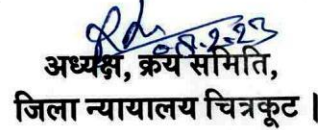 अध्यक्ष, क्रय समिति,
जिला न्यायालय चित्रकूट ।